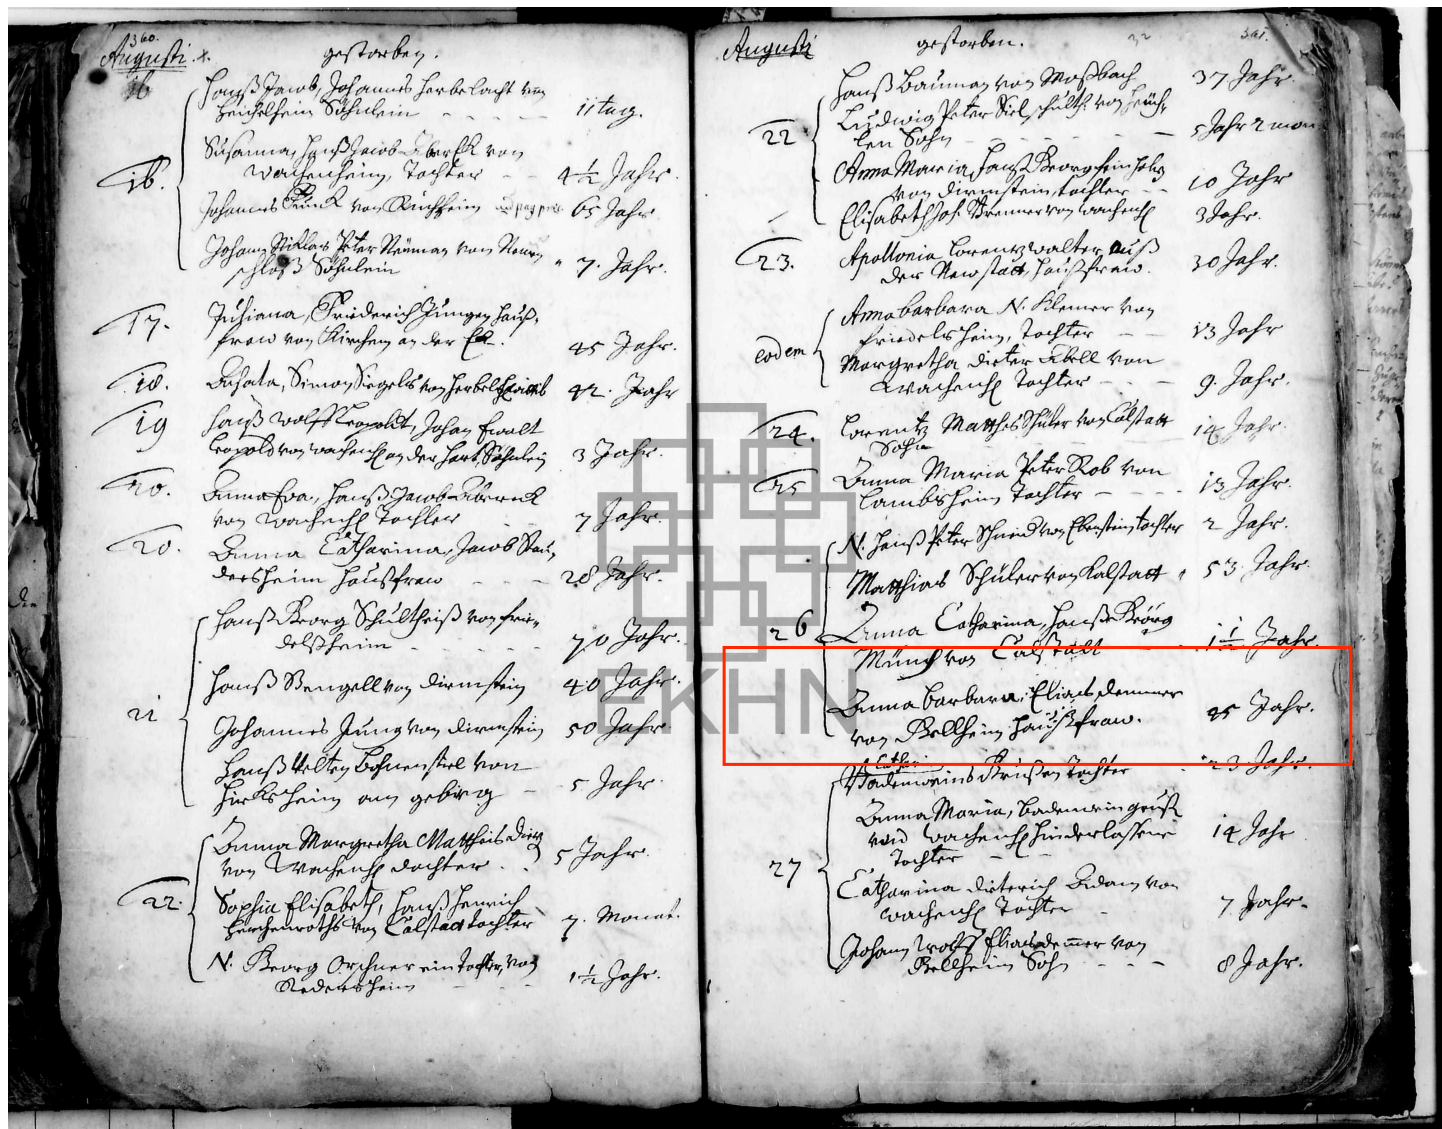 360.
Augusti
gestorben.
16
Hanß Jacob, Johannes Herbelacht von
Söhnlein
11 tag.
16.
Susanna, Hanß Jacob von
Wachenheim, Tochter
4½ Jahr.
Johannes Funck von Kirchheim
65 Jahr.
Johann Niklas Peter Neuman von
schloß Söhnlein
7. Jahr.
17.
Juliana, Friederich Jungen Hauß-
fraw von Kirchem an der Eck.
45 Jahr.
18.
Agata, Simon Siegels von
42. Jahr
19
Hanß Wolff Leopoldt, Johan Ewalt
Leopold von Wachenh. an der Hart, Söhnlein
3 Jahr.
20.
Anna Eva, Hanß Jacob
von Wachenh. Tochter
7 Jahr.
20.
Anna Catharina, Jacob
dersheim Haußfraw
28 Jahr.
21
Hanß Georg Schultheiß von Frie-
delßheim
70 Jahr.
Hanß Stengell von Dirmstein
40 Jahr.
Johannes Jung von Dirmstein
50 Jahr.
Hanß Velten Bohnenstiel von
am gebirg
5 Jahr
22.
Anna Margretha Matthis
von Wachenh. dochter
5 Jahr.
Sophia Elisabeth, Hanß Henrich
von Calstatt tochter
7. Monat.
N. Georg Orthner ein tochter, von
Rödersheim
1½ Jahr.
361.
32
Augusti
gestorben.
22
Hanß Bauman von Moßbach
37 Jahr
Ludwig Peter Schulth. von
len Sohn
5 Jahr 2 mon
Anna Maria Hanß Georg
von Dirmstein, tochter
10 Jahr
Elisabeth Joh. Brenner von Wachenh.
3 Jahr.
23.
Apollonia Lorentz Walter auß
der Newstatt, Haußfraw.
30 Jahr.
eodem
Anna barbara N. Klemer von
Friedelsheim, Tochter
13 Jahr
Margretha Dieter Abell von
Wachenh. Tochter
9. Jahr.
24.
Lorentz Matthis Schuler von Calstatt
Sohn
14 Jahr.
25
Anna Maria Peter Rob von
Lambsheim Tochter
13 Jahr.
26
N. Hanß Peter Schneid von Ebertstein, tochter
2 Jahr.
Matthias Schuler von Kalstatt
53 Jahr.
Anna Catharina, Hanß Georg
Münch von Calstatt
1½ Jahr.
Anna barbara, Elias Demmer
von Bellheim Haußfraw.
25 Jahr.
27
Cathar.
Tochter
23. Jahr.
Anna Maria,
von Wachenh. hinderlassene
Tochter
14 Jahr
Catharina Dieterich Adam von
Wachenh. Tochter
7 Jahr.
Johann Wolff Elias Demer von
Bellheim Sohn
8 Jahr.
EKHN